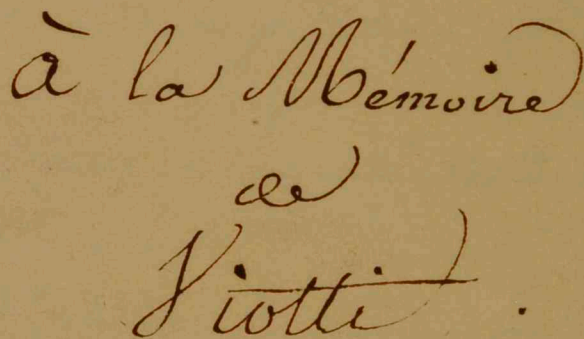 à la Mémoire
de
Viotti.